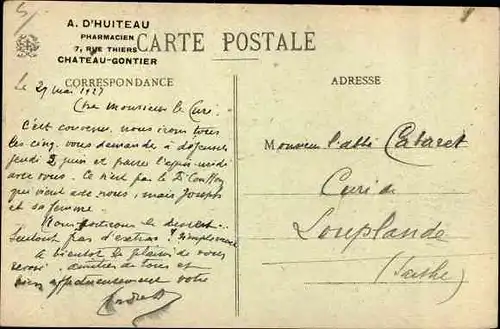 A. D'HUITEAU
PHARMACIEN
7, RUE THIERS
CHATEAU-GONTIER
CARTE POSTALE
CORRESPONDANCE
ADRESSE
le 29 mai 1927
Cher Monsieur le Curé.
C'est convenu, nous irons tous
les cinq, vous demander à déjeuner
jeudi 2 juin et passer l'après-midi
avec vous. Ce n'est pas le Dr
qui vient avec nous, mais Joseph
et sa femme.
Nous porterons le dessert.
Surtout pas d'extras !
à bientôt le plaisir de vous
revoir, amitiés de tous et
bien affectueusement votre
Monsieur l'abbé Cabaret
Curé de
Louplande
(Sarthe)